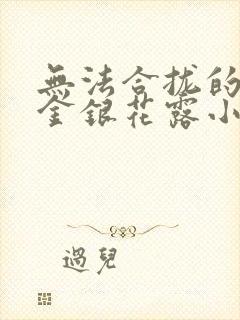 無法合拢的
金銀花露小
過兒